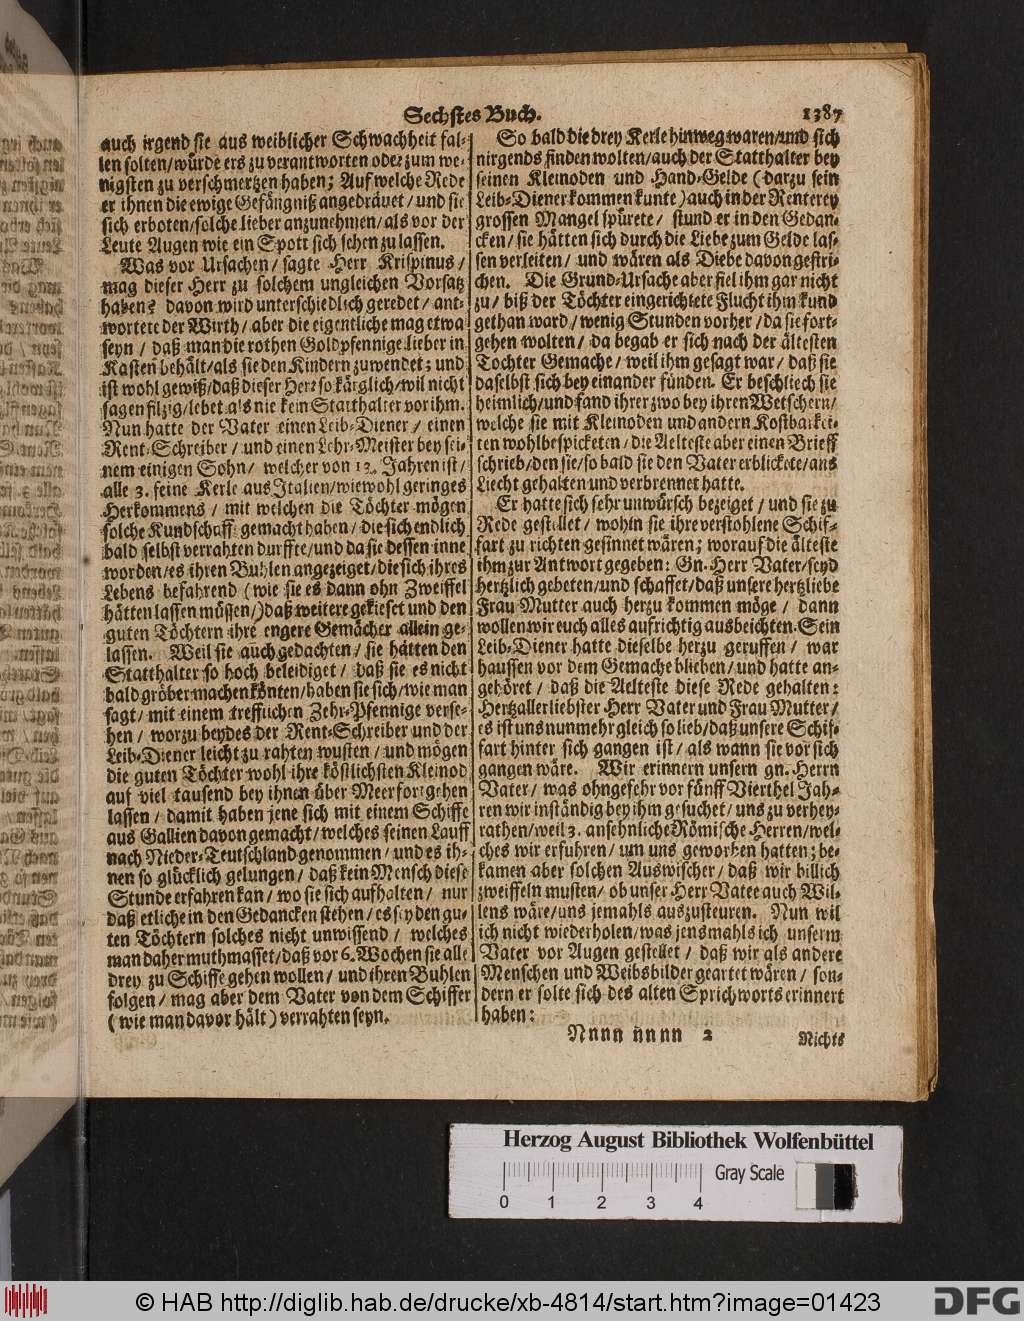 Sechstes Buch. 1387
auch irgend sie aus weiblicher Schwachheit fal-
len solten/würde ers zu verantworten oder zum we-
nigsten zu verschmertzen haben; Auf welche Rede
er ihnen die ewige Gefängniß angedräuet/ und sie
sich erboten/solche lieber anzunehmen/als vor der
Leute Augen wie ein Spott sich sehen zu lassen.
Was vor Ursachen/ sagte Herr Krispinus/
mag dieser Herr zu solchem ungleichen Vorsatz
haben? davon wird unterschiedlich geredet/ ant-
wortete der Wirth/ aber die eigentliche mag etwa
seyn/ daß man die rothen Goldpfennige lieber in
Kasten behält/als sie den Kindern zuwendet; und
ist wohl gewiß/daß dieser Herr so kärglich/wil nicht
sagen filzig/lebet als nie kein Statthalter vor ihm.
Nun hatte der Vater einen Leib-Diener/ einen
Rent-Schreiber/ und einen Lehr-Meister bey sei-
nem einigen Sohn/ welcher von 12. Jahren ist/
alle 3. feine Kerle aus Italien/wiewohl geringes
Herkommens/ mit welchen die Töchter mögen
solche Kundschafft gemacht haben/ die sich endlich
bald selbst verrahten durffte/und da sie dessen inne
worden/es ihren Buhlen angezeiget/die sich ihres
Lebens befahrend (wie sie es dann ohn Zweiffel
hätten lassen müssen/) daß weitere gekieset und den
guten Töchtern ihre engere Gemächer allein ge-
lassen. Weil sie auch gedachten/ sie hätten den
Statthalter so hoch beleidiget/ daß sie es nicht
bald gröber machen könten/haben sie sich/wie man
sagt/ mit einem trefflichen Zehr-Pfennige verse-
hen/ worzu beydes der Rent-Schreiber und der
Leib-Diener leicht zu rahten wusten/ und mögen
die guten Töchter wohl ihre köstlichsten Kleinod
auf viel tausend bey ihnen über Meer fortgehen
lassen/ damit haben jene sich mit einem Schiffe
aus Gallien davon gemacht/welches seinen Lauff
nach Nieder-Teutschland genommen/ und es ih-
nen so glücklich gelungen/ daß kein Mensch diese
Stunde erfahren kan/ wo sie sich aufhalten/ nur
daß etliche in den Gedancken stehen/ es sey den gu-
ten Töchtern solches nicht unwissend/ welches
man daher muthmasset/daß vor 6. Wochen sie alle
drey zu Schiffe gehen wollen/ und ihren Buhlen
folgen/ mag aber dem Vater von dem Schiffer
(wie man davor hält) verrahten seyn.
So bald die drey Kerle hinweg waren/und sich
nirgends finden wolten/auch der Statthalter bey
seinen Kleinoden und Hand-Gelde (darzu sein
Leib-Diener kommen kunte) auch in der Renterey
grossen Mangel spürete/ stund er in den Gedan-
cken/ sie hätten sich durch die Liebe zum Gelde las-
sen verleiten/ und wären als Diebe davon gestri-
chen. Die Grund-Ursache aber fiel ihm gar nicht
zu/ biß der Töchter eingerichtete Flucht ihm kund
gethan ward/ wenig Stunden vorher/ da sie fort-
gehen wolten/ da begab er sich nach der ältesten
Tochter Gemache/ weil ihm gesagt war/ daß sie
daselbst sich bey einander fünden. Er beschliech sie
heimlich/und fand ihrer zwo bey ihren Wetschern/
welche sie mit Kleinoden und andern Kostbarkei-
ten wohl bespicketen/ die Aelteste aber einen Brieff
schrieb/den sie/so bald sie den Vater erblickete/ans
Liecht gehalten und verbrennet hatte.
Er hatte sich sehr unwürsch bezeiget/ und sie zu
Rede gestellet/ wohin sie ihre verstohlene Schif-
fart zu richten gesinnet wären; worauf die älteste
ihm zur Antwort gegeben: Gn. Herr Vater/seyd
hertzlich gebeten/und schaffet/daß unsere hertzliebe
Frau Mutter auch herzu kommen möge/ dann
wollen wir euch alles aufrichtig ausbeichten. Sein
Leib-Diener hatte dieselbe herzu geruffen/ war
haussen vor dem Gemache blieben/ und hatte an-
gehöret/ daß die Aelteste diese Rede gehalten:
Hertzallerliebster Herr Vater und Frau Mutter/
es ist uns nunmehr gleich so lieb/daß unsere Schif-
fart hinter sich gangen ist/ als wann sie vor sich
gangen wäre. Wir erinnern unsern gn. Herrn
Vater/ was ohngefehr vor fünff Vierthel Jah-
ren wir inständig bey ihm gesuchet/ uns zu verhey-
rathen/weil 3. ansehnliche Römische Herren/wel-
ches wir erfuhren/ um uns geworben hatten; be-
kamen aber solchen Auswischer/ daß wir billich
zweiffeln musten/ ob unser Herr Vatee auch Wil-
lens wäre/uns jemahls auszusteuren. Nun wil
ich nicht wiederholen/was jensmahls ich unserm
Vater vor Augen gestellet/ daß wir als andere
Menschen und Weibsbilder geartet wären/ son-
dern er solte sich des alten Sprichworts erinnert
haben:
Nnnn nnnn 2 Nichts
Herzog August Bibliothek Wolfenbüttel
Gray Scale
0 1 2 3 4
© HAB http://diglib.hab.de/drucke/xb-4814/start.htm?image=01423
DFG